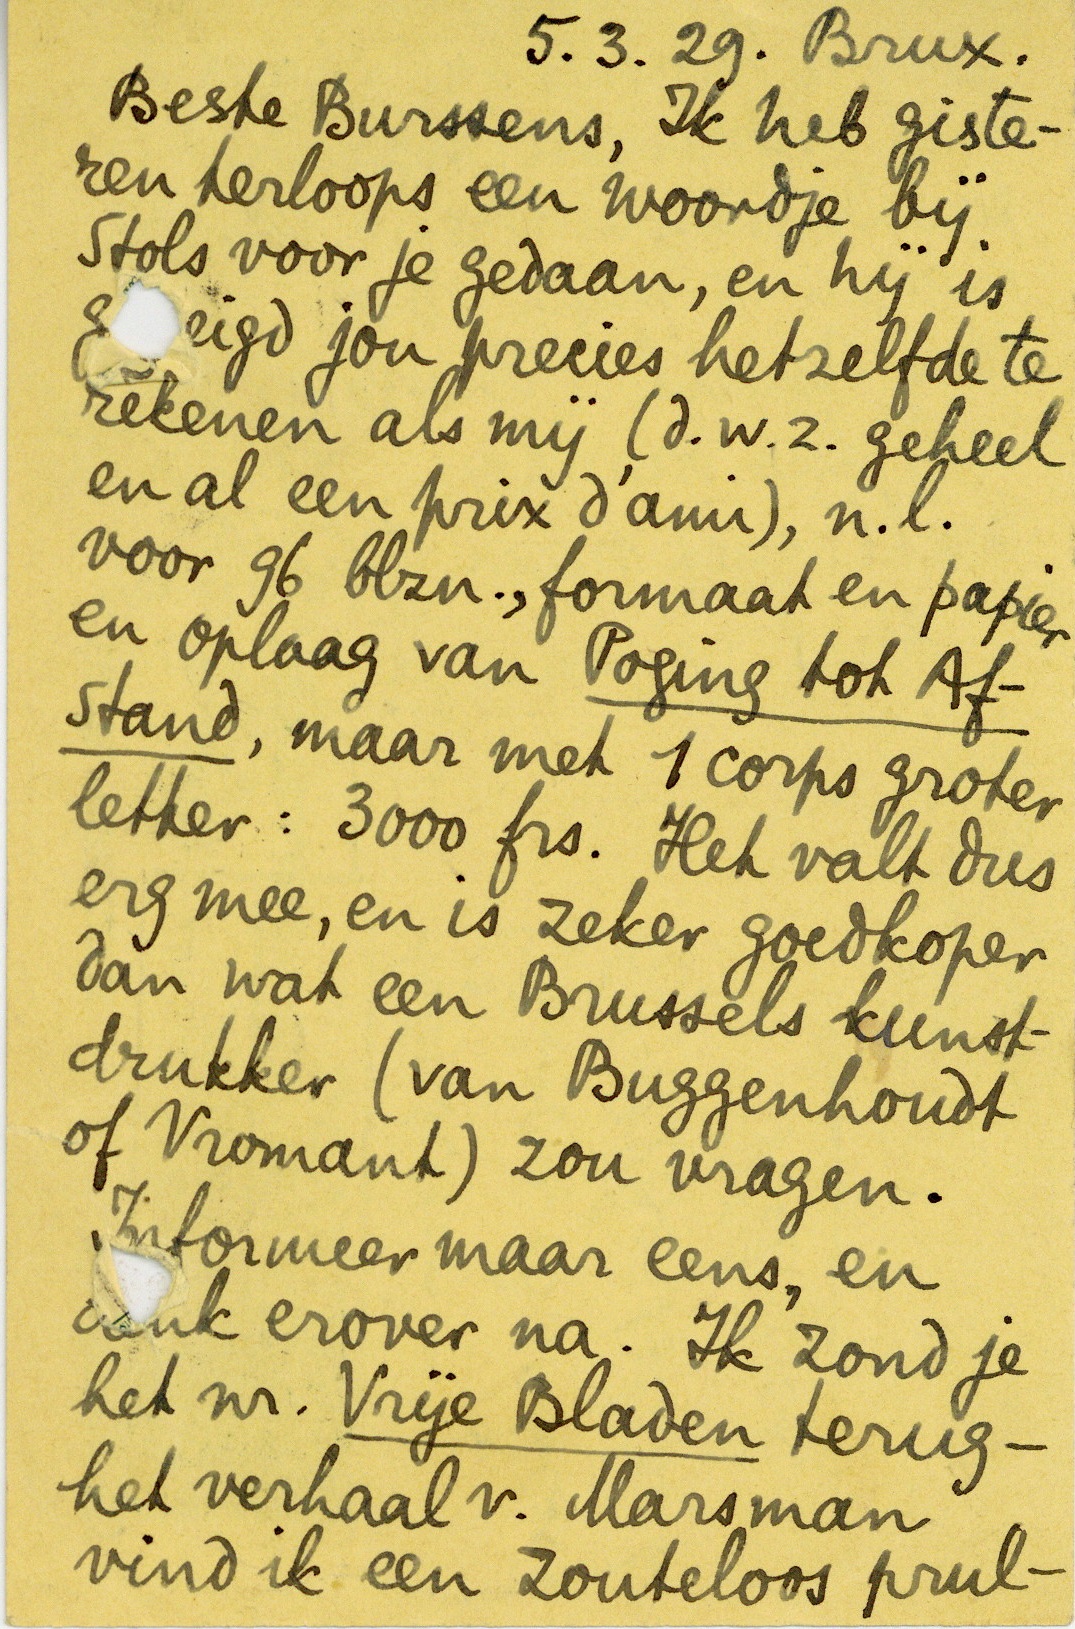 5.3.29. Brux.
Beste Burssens, Ik heb giste-
ren terloops een woordje bij
Stols voor je gedaan, en hij is
jou precies hetzelfde te
rekenen als mij (d.w.z. geheel
en al een prix d'ami), n.l.
voor 96 blzn., formaat en papier
en oplaag van Poging tot Af-
stand, maar met 1 corps groter
letter: 3000 frs. Het valt dus
erg mee, en is zeker goedkoper
dan wat een Brussels kunst-
drukker (van Buggenhoudt
of Vromant) zou vragen.
Informeer maar eens, en
denk erover na. Ik zond je
het nr. Vrije Bladen terug -
het verhaal v. Marsman
vind ik een zouteloos prul-